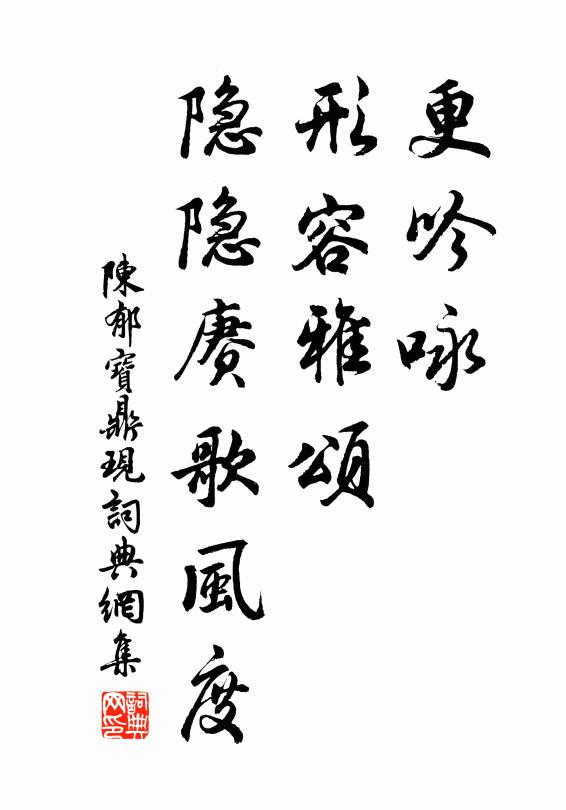 更吟咏
形容雅頌
隐隐赓歌風度
陳郁寶鼎現詞典網集
詞典网印